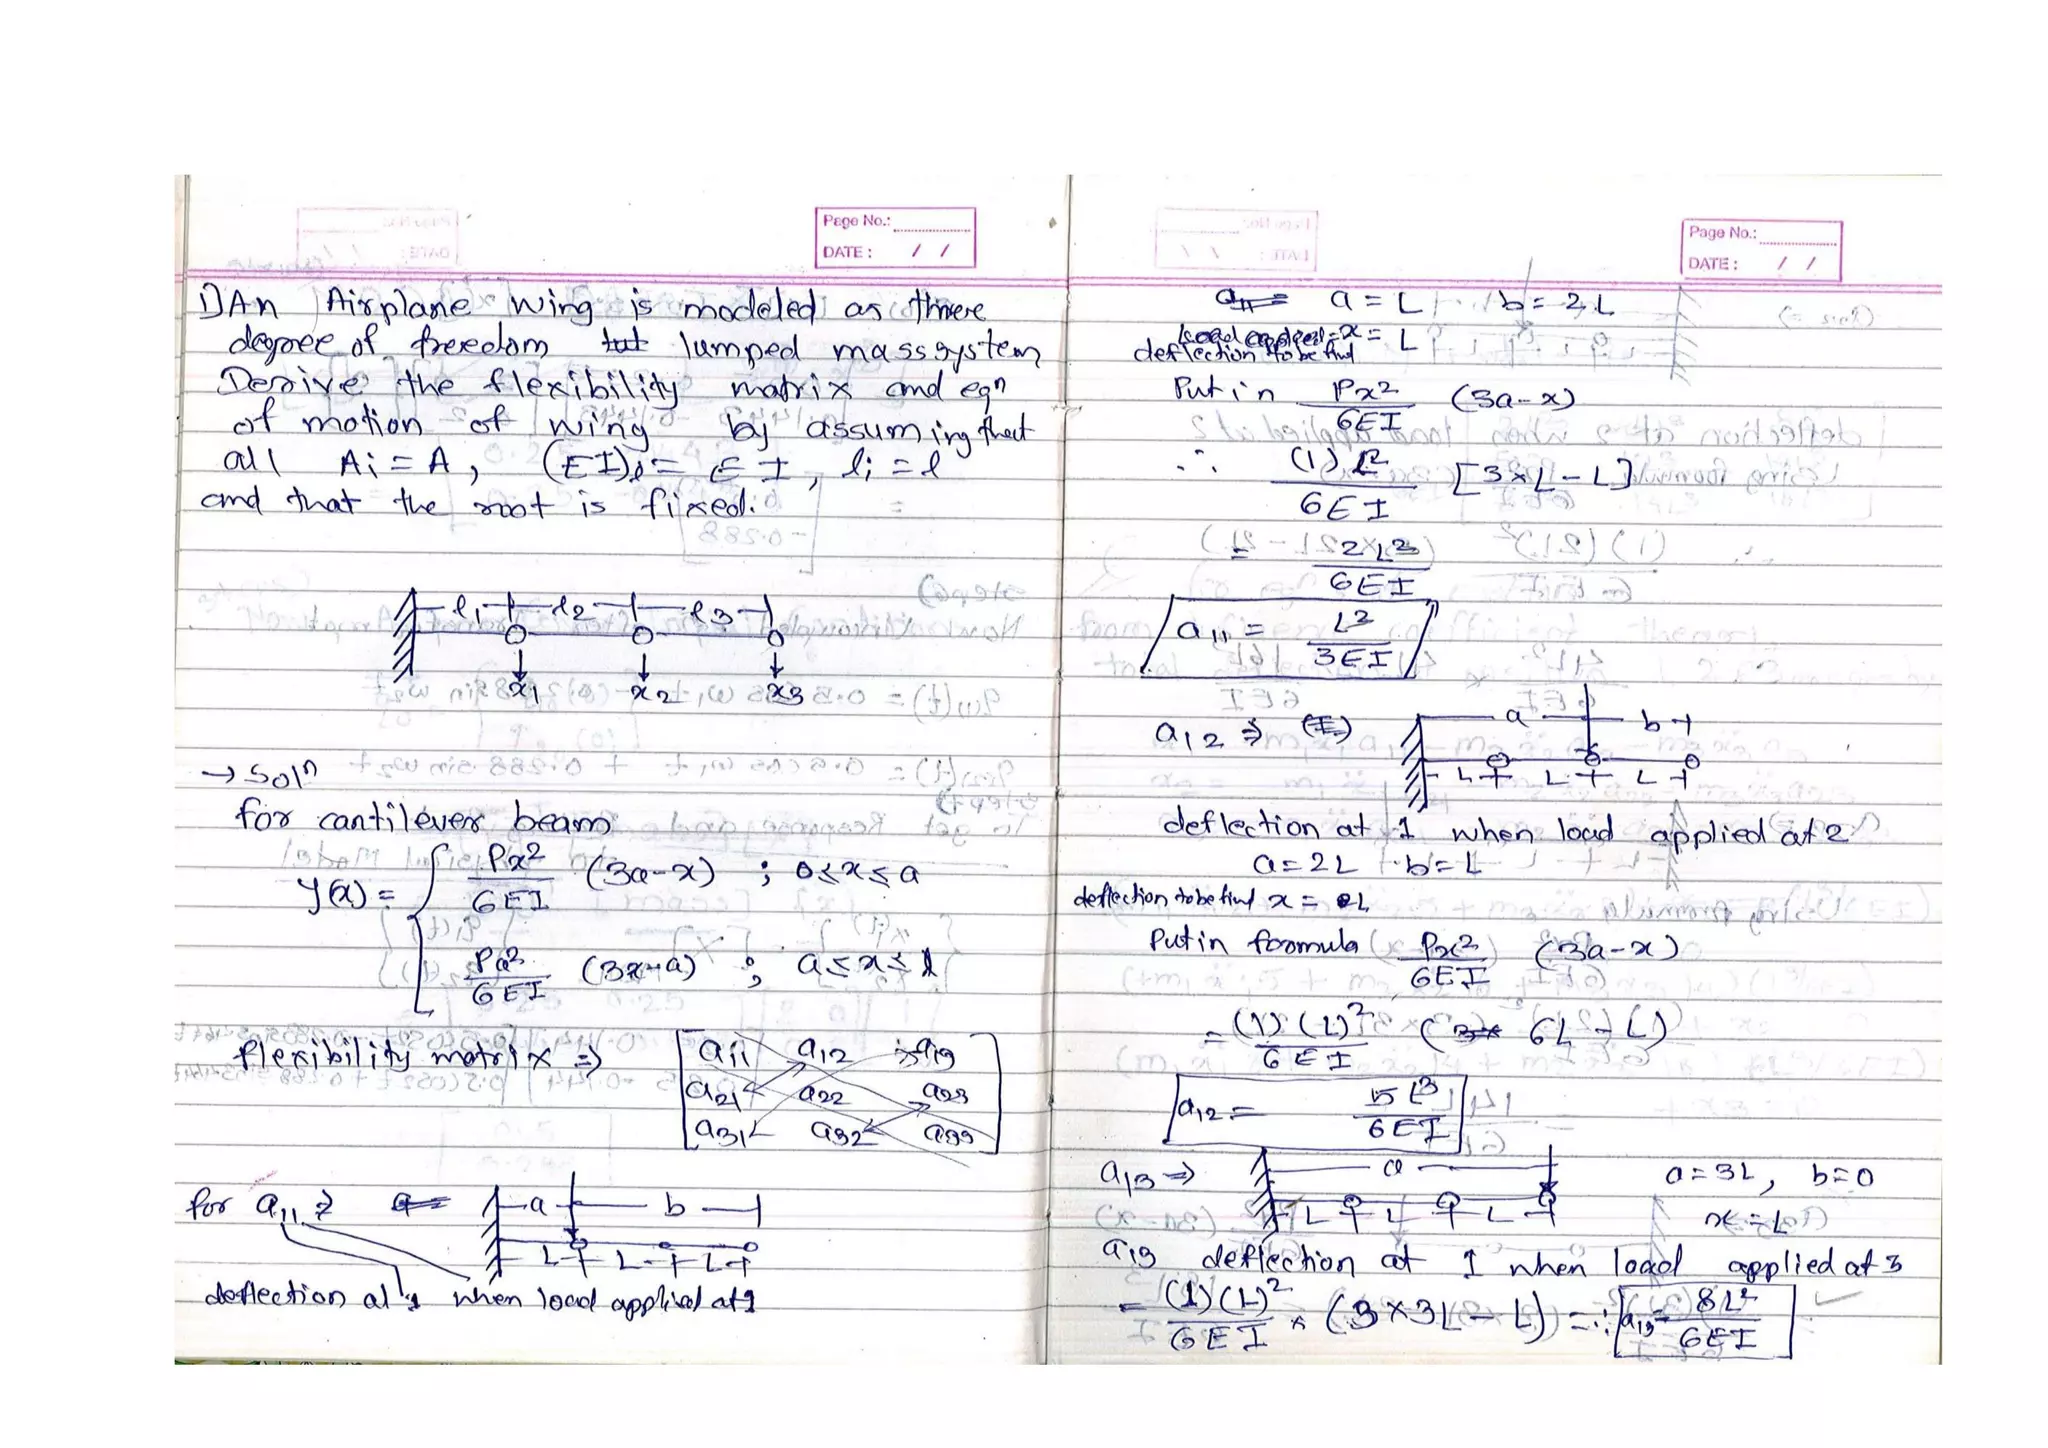 Page No.:
DATE : / /
1) An Airplane wing is modeled as three
degree of freedom lumped mass system
Derive the flexibility matrix and eqn
of motion of wing by assuming that
all Ai = A, (EI)i = EI, li = l
and that the root is fixed.
l1 l2 l3
x1 x2 x3
→ Soln
for cantilever beam
y(x) = { Px²/6EI (3a-x) ; 0≤x≤a
Pa²/6EI (3x-a) ; a≤x≤l
flexibility matrix ⇒ [ a11 a12 a13
a21 a22 a23
a31 a32 a33 ]
for a11 ⇒ a b
L L L
deflection at 1 when load applied at 1
Page No.:
DATE : / /
a = L b = 2L
x = L
deflection to be find
Put in Px²/6EI (3a-x)
∴ (1) L²/6EI [3×L-L]
= 2L³/6EI
a11 = L³/3EI
a12 ⇒ a b
L L L
deflection at 1 when load applied at 2
a = 2L b = L
deletion to be find x = L
Put in formula Px²/6EI (3a-x)
= (1) (L)²/6EI (6L-L)
a12 = 5L³/6EI
a13 ⇒ a a = 3L, b = 0
L L L x = L
a13 deflection at 1 when load applied at 3
= (1)(L)²/6EI × (3×3L-L) = ∴ a13 = 8L²/6EI